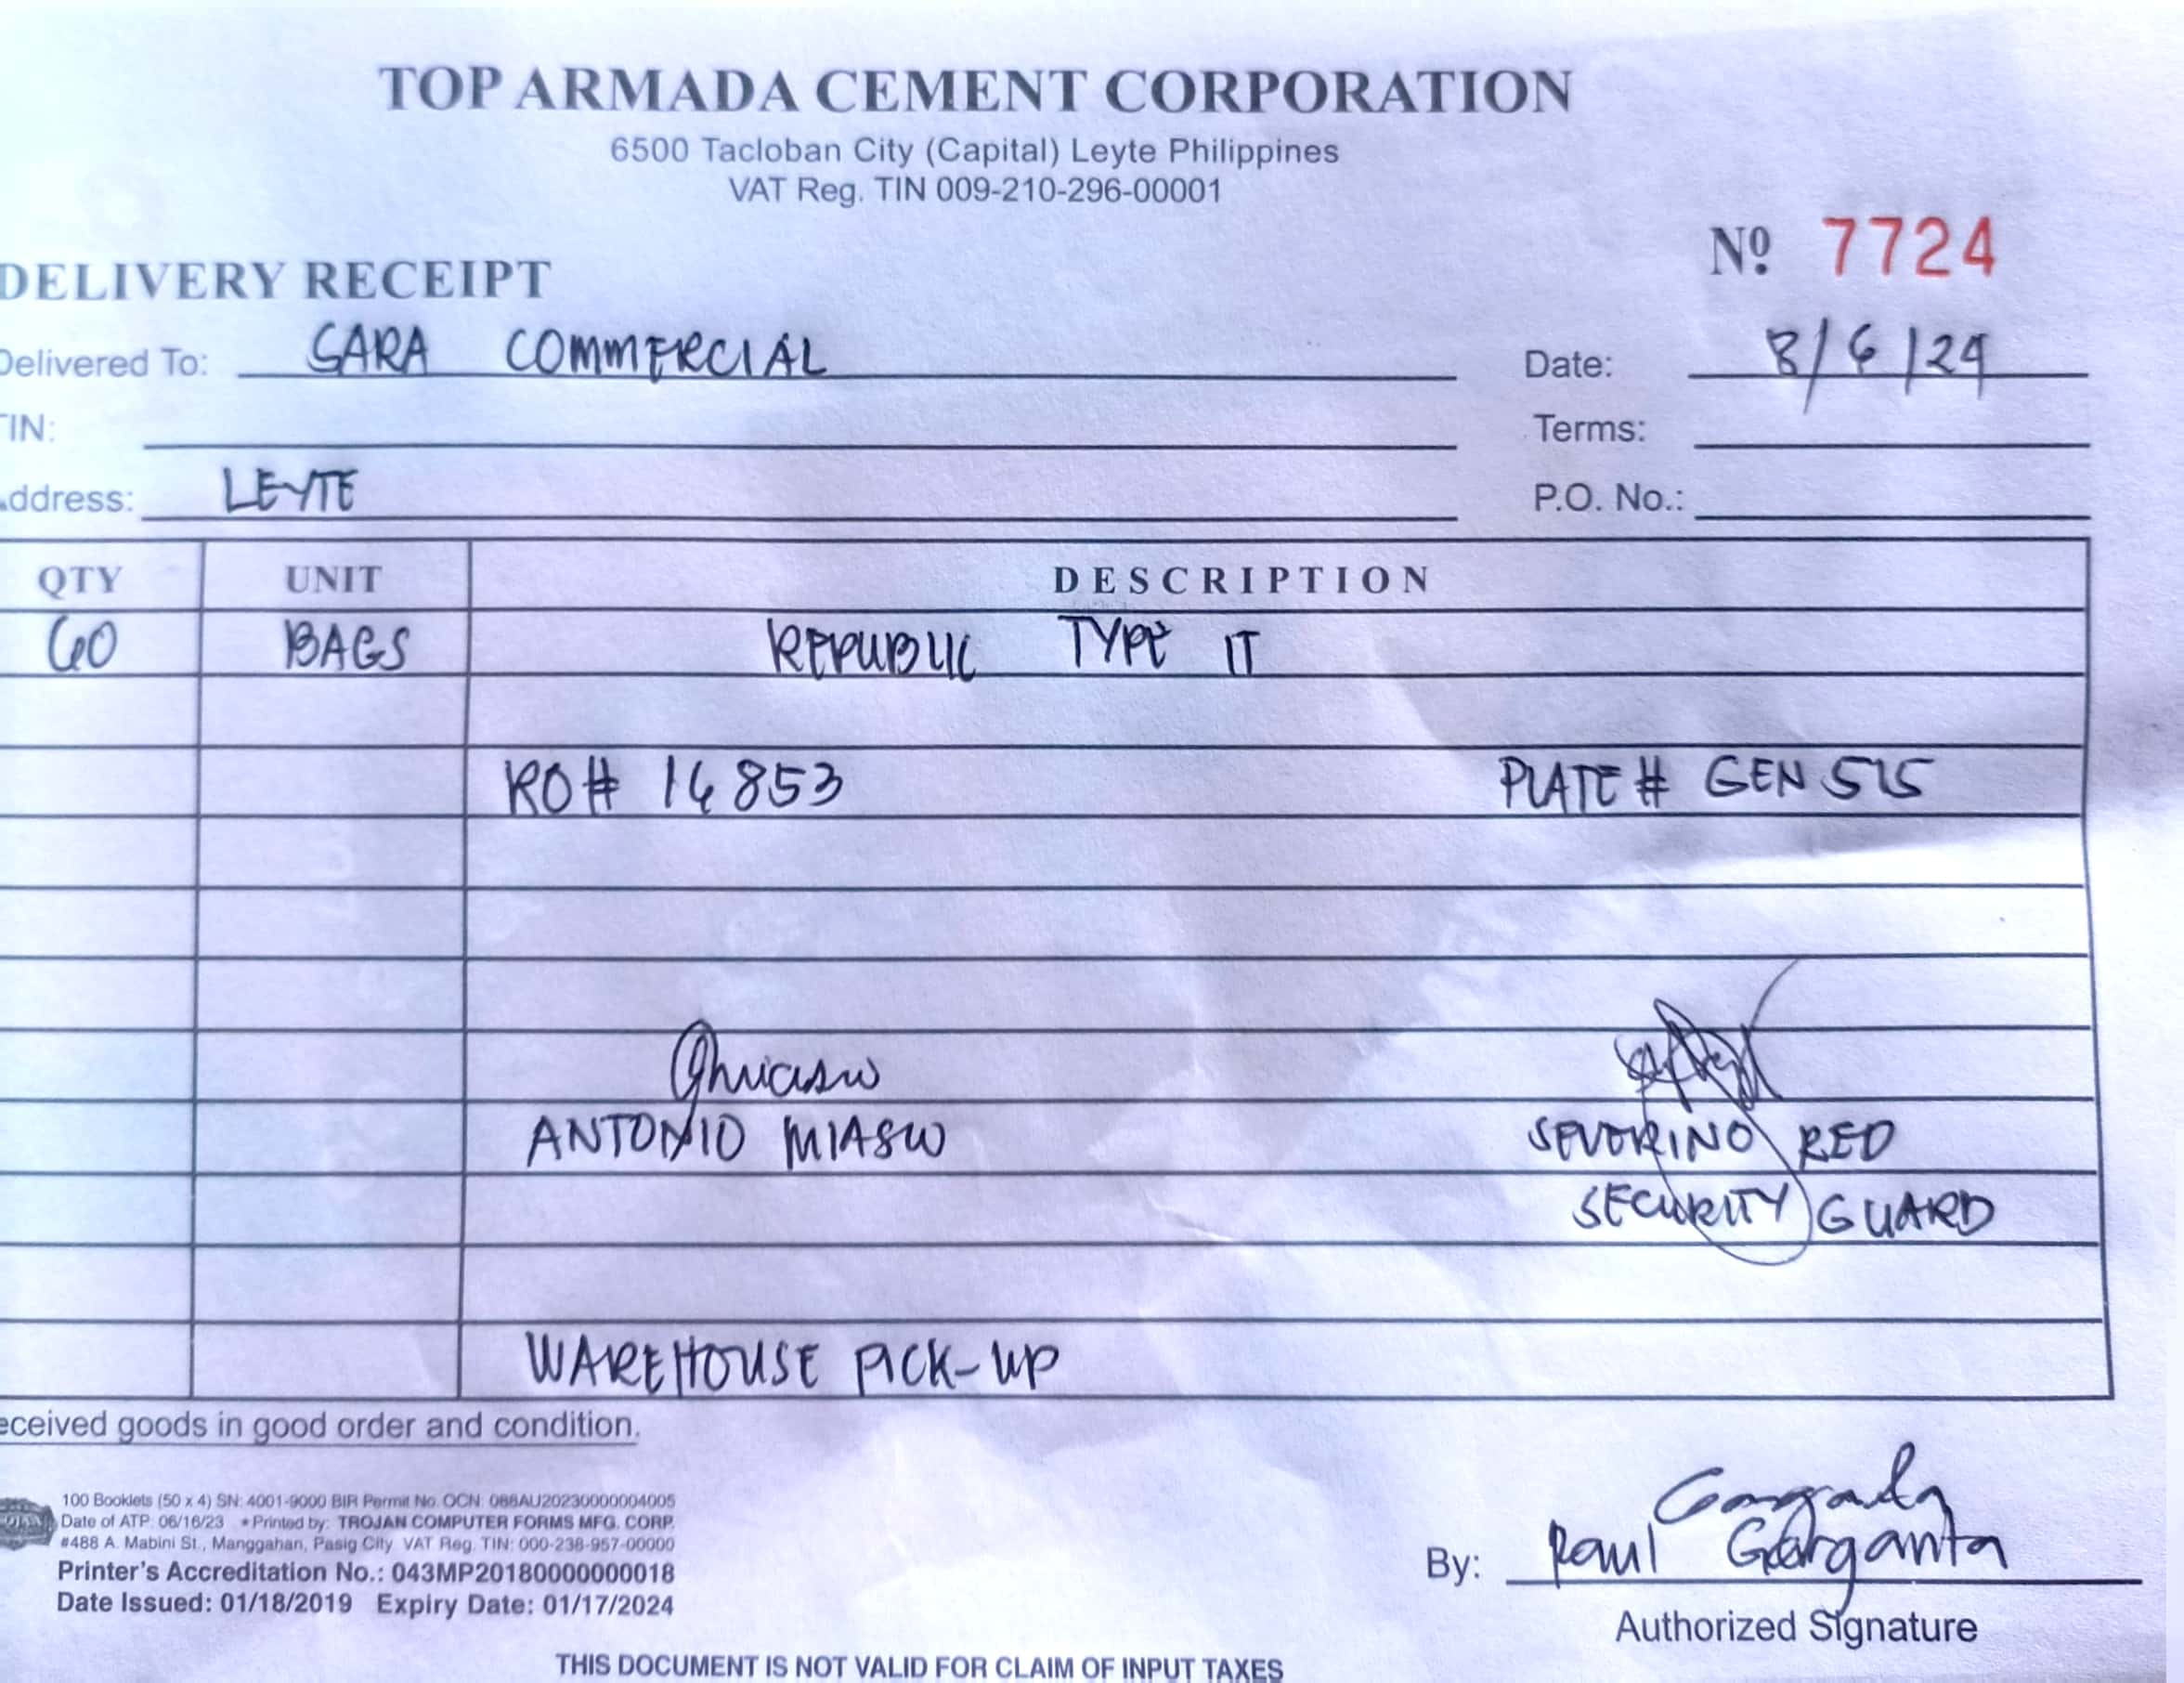 TOP ARMADA CEMENT CORPORATION
6500 Tacloban City (Capital) Leyte Philippines
VAT Reg. TIN 009-210-296-00001
Nº 7724
DELIVERY RECEIPT
Delivered To: SARA COMMERCIAL Date: 8/6/24
TIN: Terms:
Address: LEYTE P.O. No.:
QTY UNIT DESCRIPTION
60 BAGS REPUBLIC TYPE IT
RO# 16853 PLATE# GEN 515
ANTONIO MIASCO SEVERINO RED
SECURITY GUARD
WAREHOUSE PICK-UP
eceived goods in good order and condition.
100 Booklets (50 x 4) SN: 4001-9000 BIR Permit No. OCN: 088AU20230000004005
Date of ATP: 06/16/23 *Printed by: TROJAN COMPUTER FORMS MFG. CORP.
#488 A. Mabini St., Manggahan, Pasig City VAT Reg. TIN: 000-238-957-00000
Printer's Accreditation No.: 043MP20180000000018
Date Issued: 01/18/2019 Expiry Date: 01/17/2024
By: Raul Garganta
Authorized Signature
THIS DOCUMENT IS NOT VALID FOR CLAIM OF INPUT TAXES